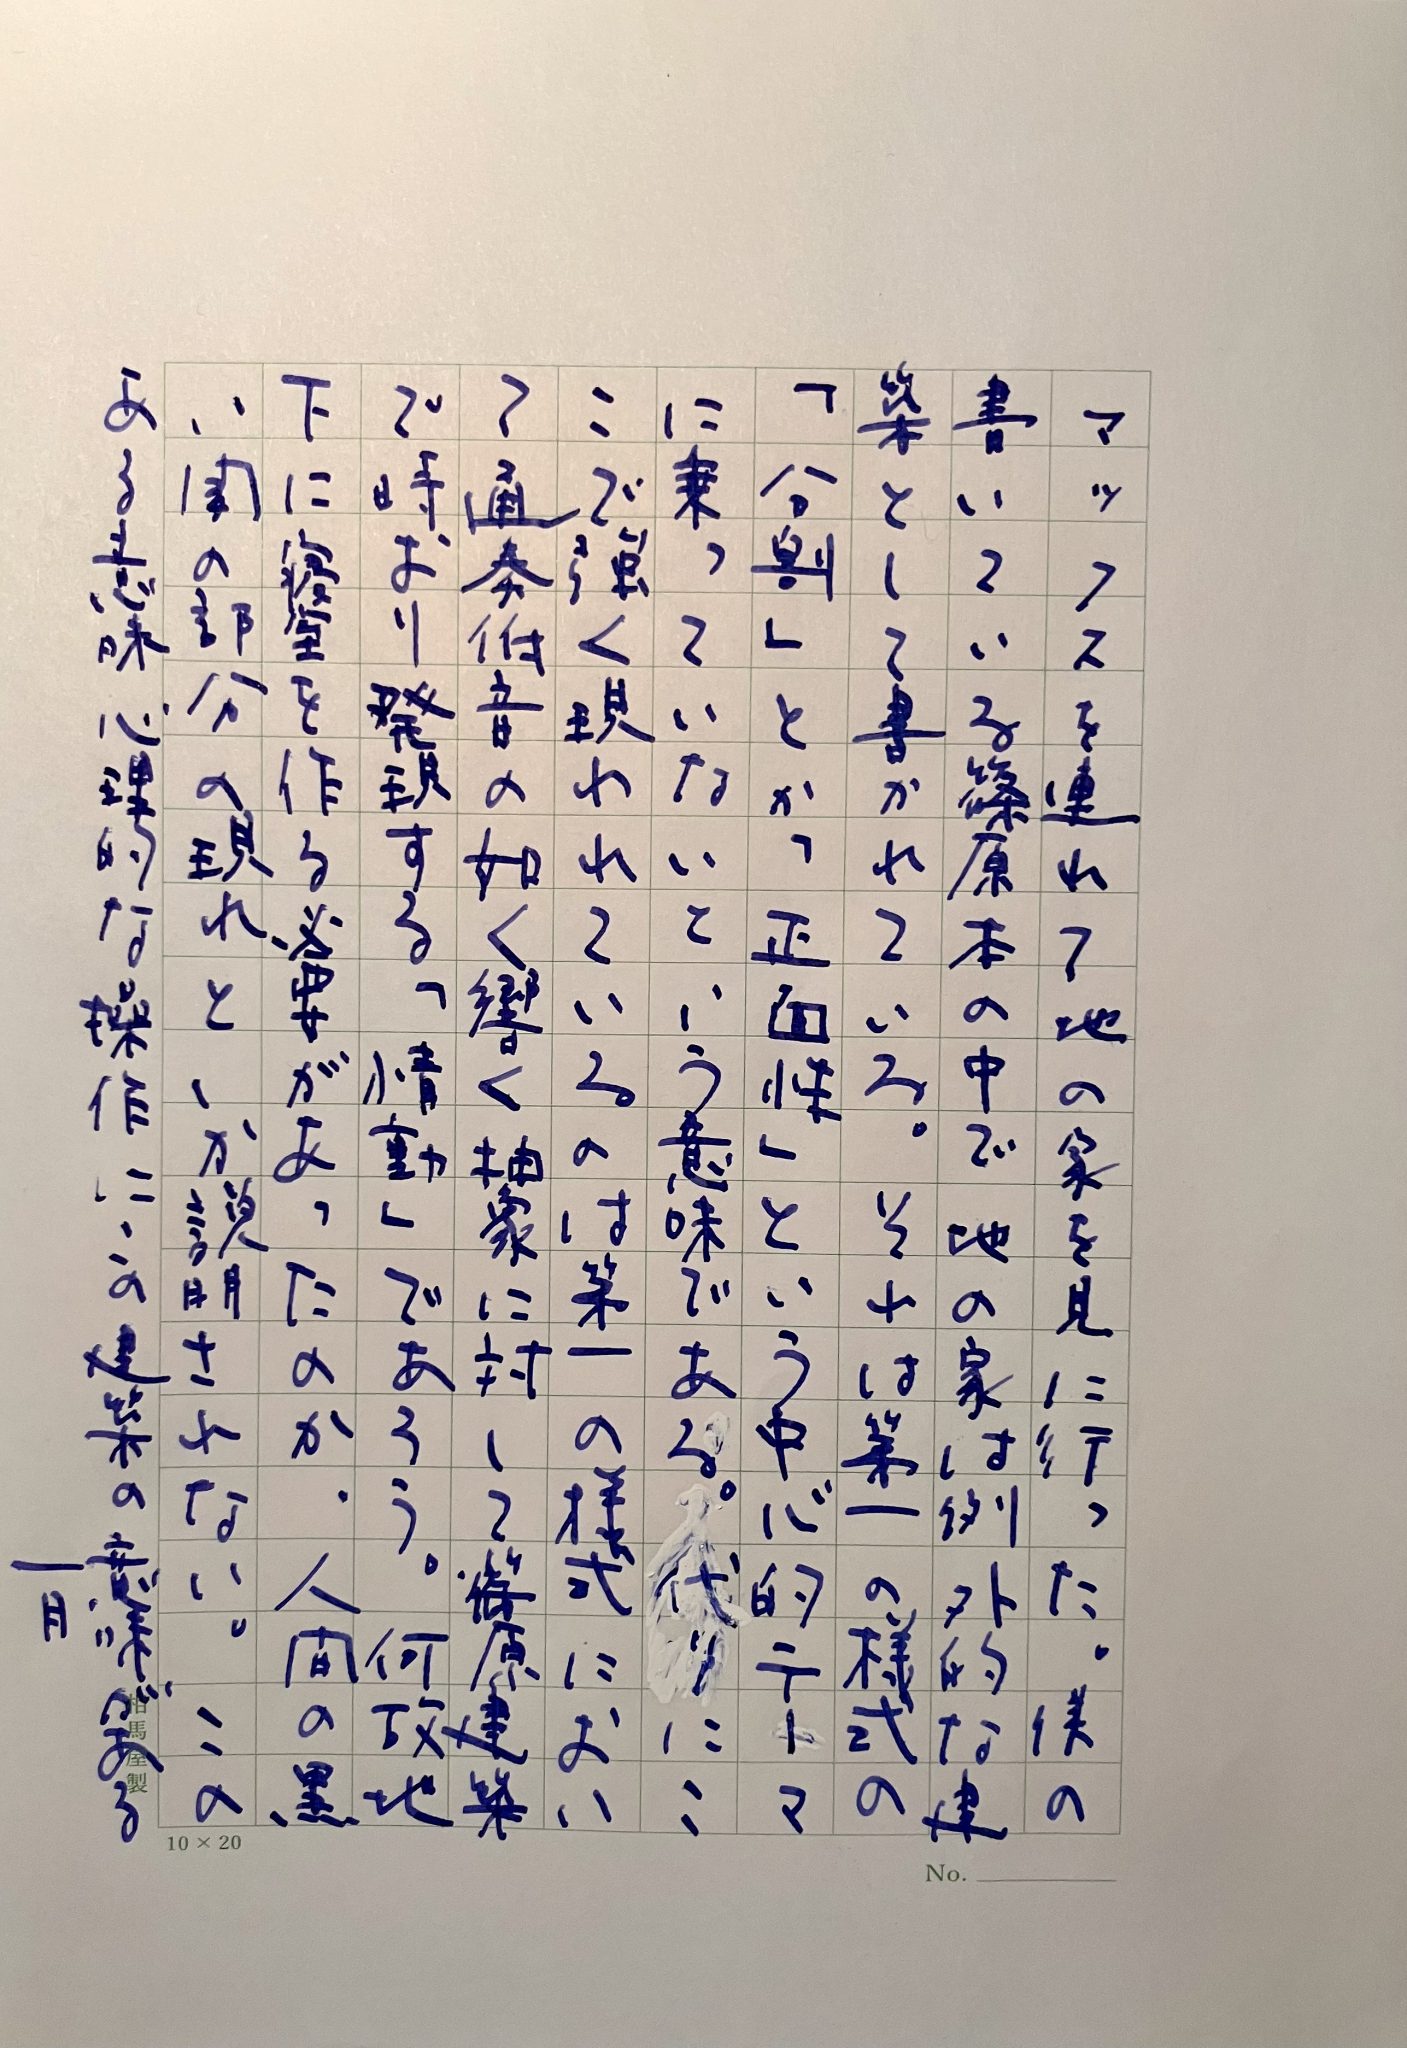 マックスを連れて地の家を見に行った。僕の
書いている篠原本の中で地の家は例外的な建
築として書かれている。それは第一の様式の
「分割」とか「正面性」という中心的テーマ
に乗っていないという意味である。代りにこ
こで強く現われているのは第一の様式におい
て通奏低音の如く響く抽象に対して篠原建築
で時おり発現する「情動」であろう。何故地
下に寝室を作る必要があったのか、人間の黒
い闇の部分の現れとしか説明されない。この
ある意味心理的な操作にこの建築の意味がある
一月
相馬屋製
10×20
No.